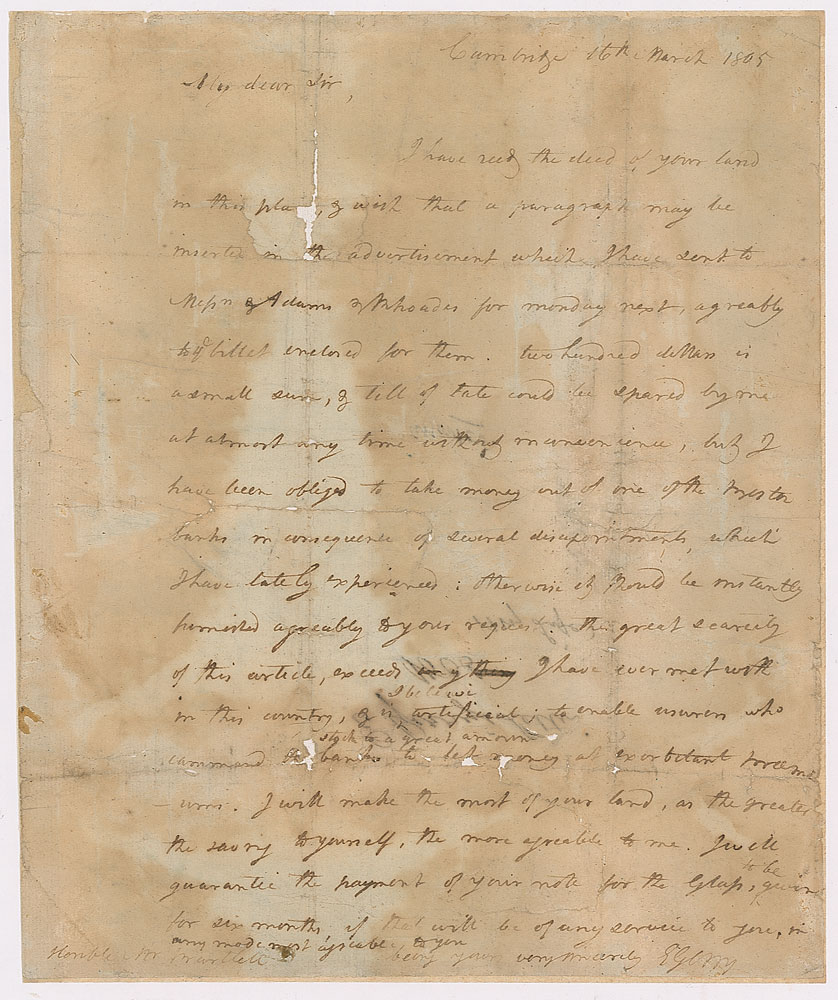 Cambridge 16th March 1805
My dear Sir,
I have recd the deed of your land
in this pla , & wish that a paragraph may be
inserted in the advertisement which I have sent to
Messrs Adams & Rhoades for monday next, agreably
to ye billet enclosed for them. two hundred dollars is
a small sum, & till of late could be spared by me
at almost any time without inconvenience, but I
have been obliged to take money out of one of the Boston
banks in consequence of several disapointments, which
I have lately experienced: otherwise it should be instantly
furnished agreably to your request. the great scarcity
of this article, exceeds any thing I have ever met with
I believe
in this country, & is, artificial; to enable usurers who
stock to a great amount
command the banks to let money at exorbitant premi
-ums. I will make the most of your land, as the greater
the saving to yourself, the more agreable to me. I will
to be
guarantie the payment of your note for the Glass, given
for six months, if that will be of any service to you, in
any mode most agreable to you
Honble Mr Bartlett being your very sincerely E Gerry